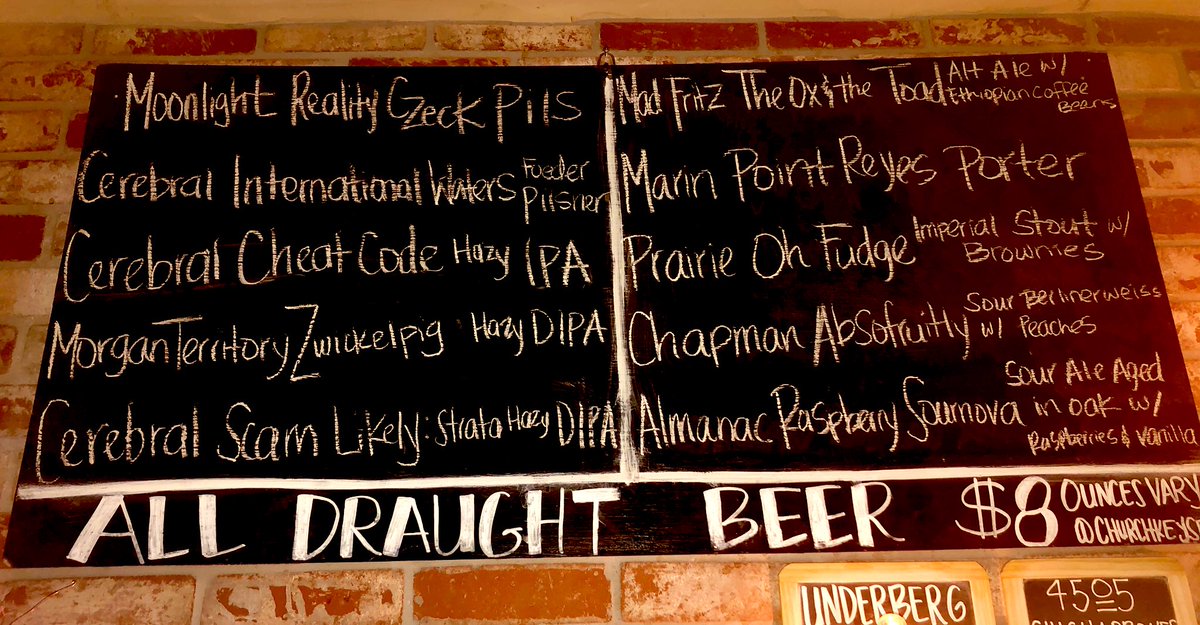 Moonlight Reality Czeck Pils
Cerebral International Waters Foeder
Pilsner
Cerebral Cheat Code Hazy IPA
Morgan Territory Zwickelpig Hazy DIPA
Cerebral Scam Likely: Strata Hazy DIPA
Mad Fritz The Ox & the Toad Alt Ale w/
Ethiopian Coffee
Beans
Marin Point Reyes Porter
Prairie Oh Fudge Imperial Stout w/
Brownies
Chapman Absofruitly Sour Berlinerweiss
w/ Peaches
Almanac Raspberry Sournova Sour Ale Aged
in oak w/
Raspberries & vanilla
ALL DRAUGHT BEER $8 OUNCES VARY
@CHURCHKEYSF
UNDERBERG
4505